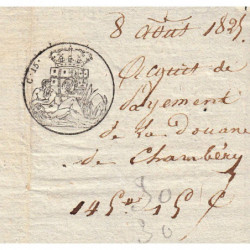 8 août 1825.
C. 15.
Acquit de
Payement
de la Douane
de Chambéry
145# 15 C
30
30